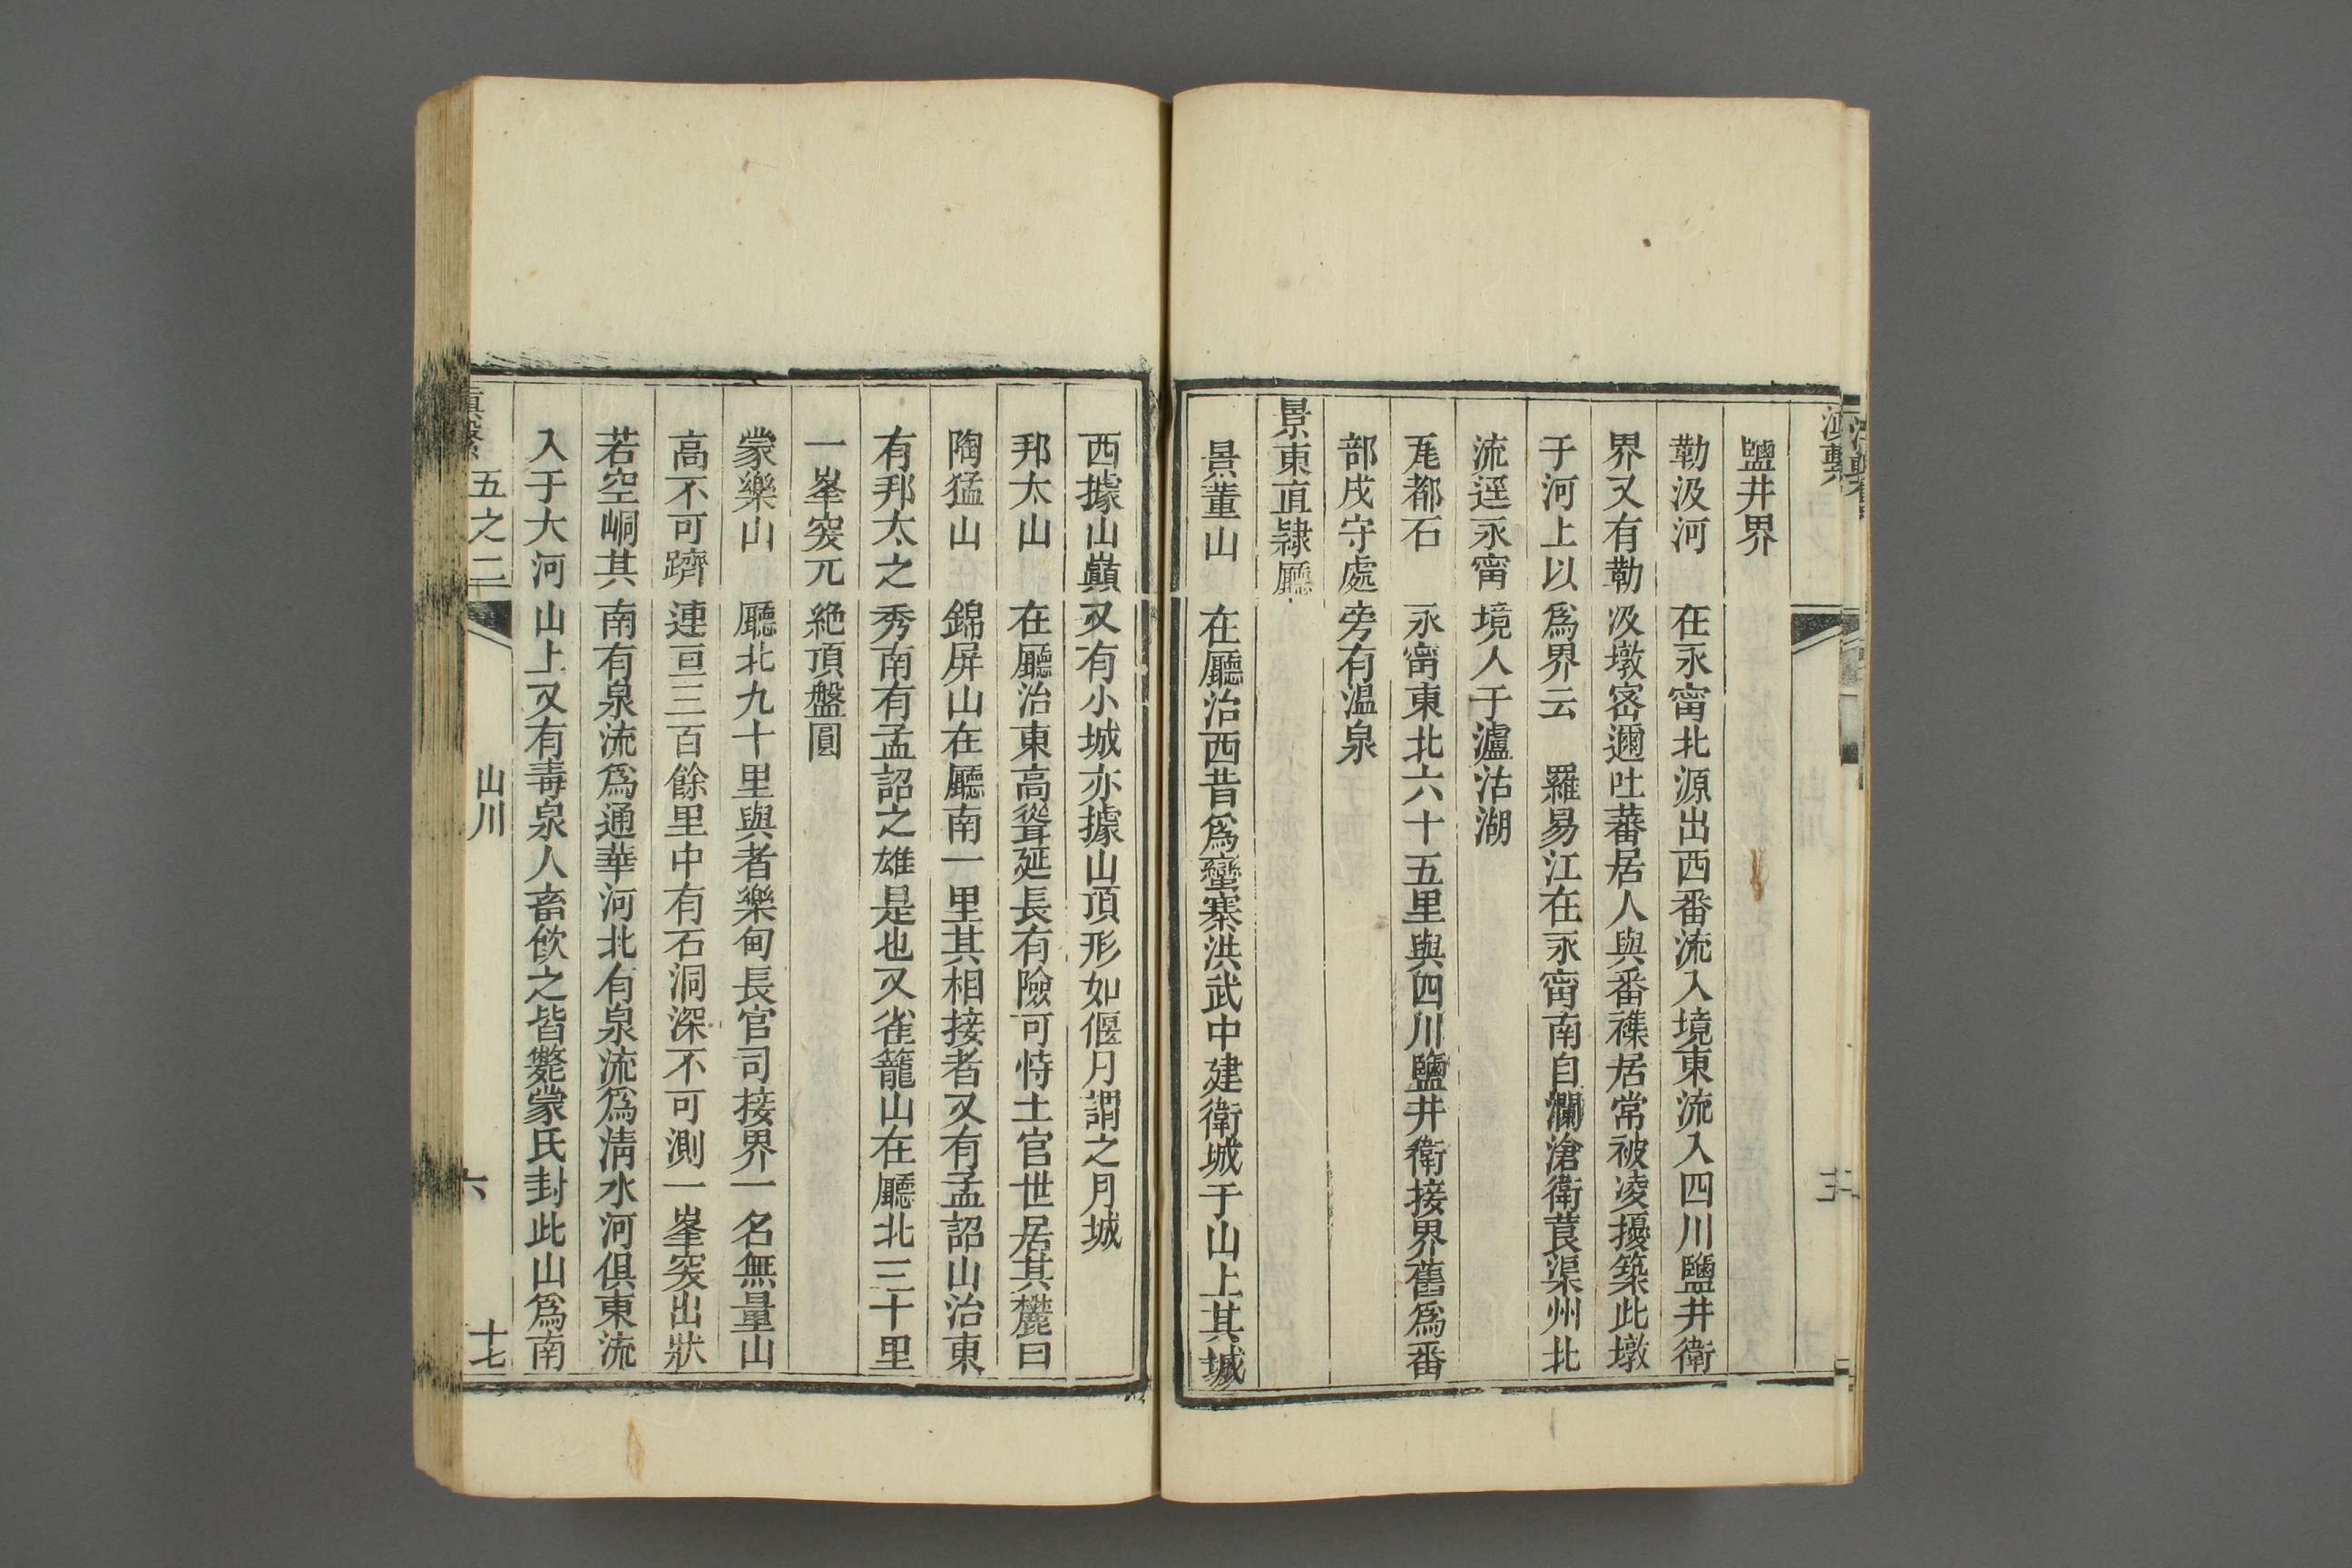 鹽井界
勒汲河　在永甯北源出西番流入境東流入四川鹽井衛
界又有勒汲墩宻邇吐蕃居人與番襍居常被凌擾築此墩
于河上以爲界云　羅易江在永甯南自瀾滄衛茛渠州北
流逕永甯境人于瀘沽湖
㞑都石　永甯東北六十五里與四川鹽井衛接界舊爲番
部戍守處旁有温泉
景東直隷廳
景董山　在廳治西昔爲蠻寨洪武中建衛城于山上其城
西據山巔又有小城亦據山頂形如偃月謂之月城
邦太山　在廳治東高聳延長有險可恃土官世居其麓曰
陶猛山　錦屏山在廳南一里其相接者又有孟詔山治東
有邦太之秀南有孟詔之雄是也又雀籠山在廳北三十里
一峯突兀絶頂盤圓
蒙樂山　廳北九十里與者樂甸長官司接界一名無量山
高不可躋連亘三百餘里中有石洞深不可測一峯突出狀
若空峒其南有泉流爲通華河北有泉流爲淸水河俱東流
入于大河山上又有毒泉人畜飲之皆斃蒙氏封此山爲南
滇繫　五之二　山川　六　十七